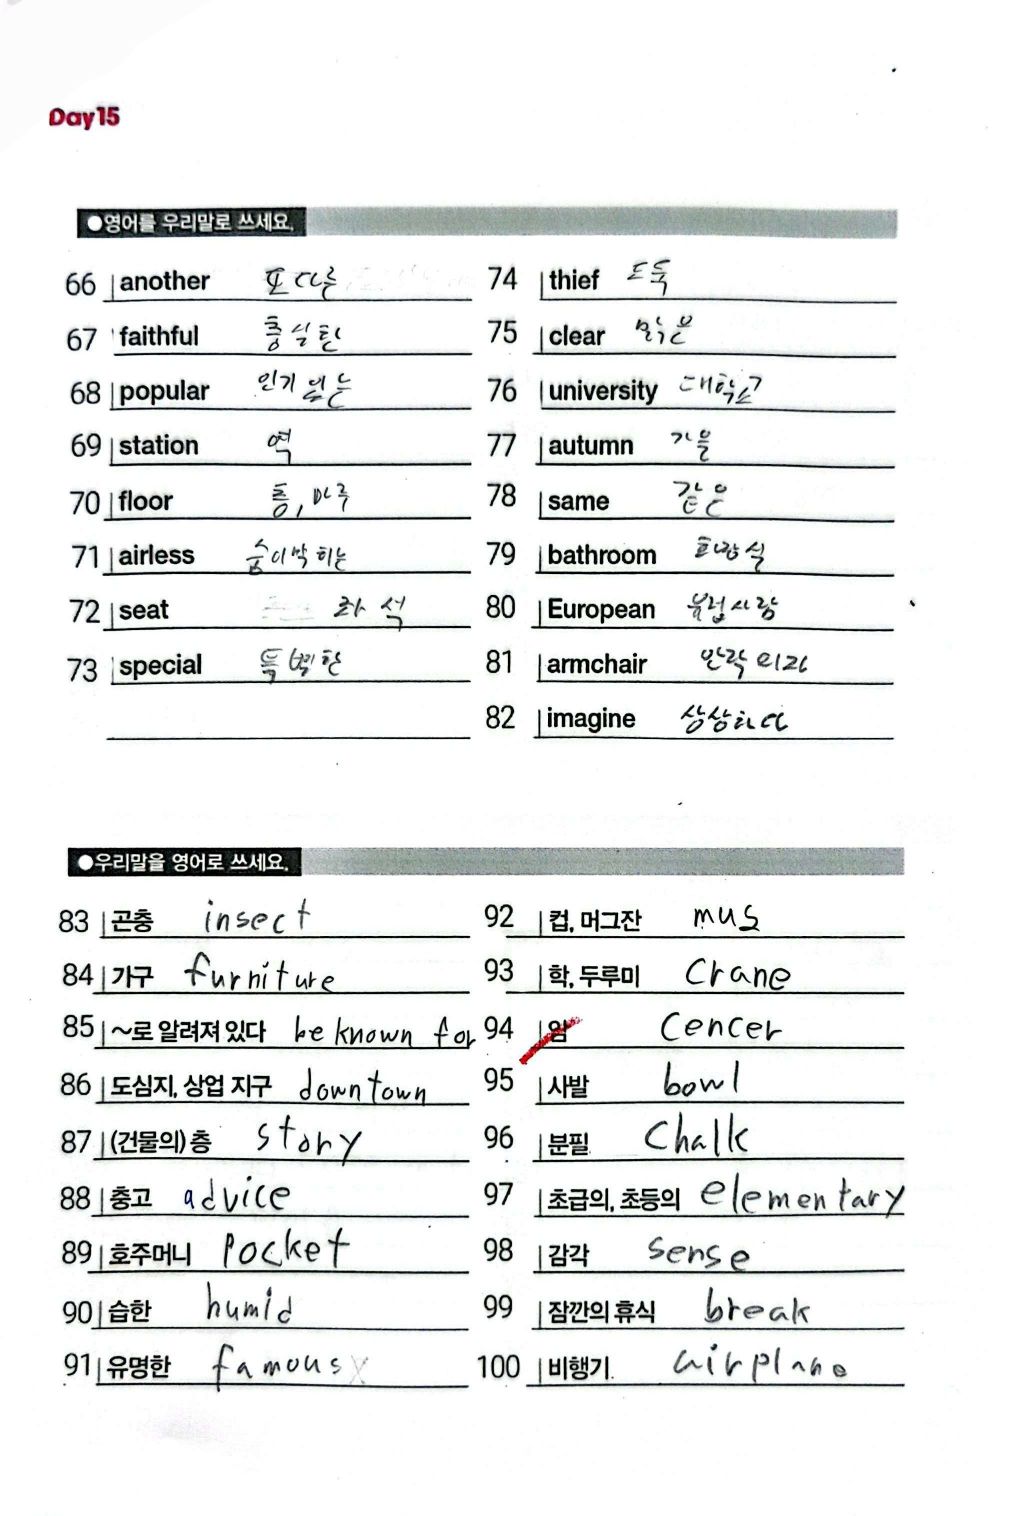 Day15
●영어를 우리말로 쓰세요.
66 another 또 다른
67 faithful 충실한
68 popular 인기 있는
69 station 역
70 floor 층, 마루
71 airless 숨이 막히는
72 seat 좌석
73 special 특별한
74 thief 도둑
75 clear 맑은
76 university 대학교
77 autumn 가을
78 same 같은
79 bathroom 화장실
80 European 유럽사람
81 armchair 안락의자
82 imagine 상상하다
●우리말을 영어로 쓰세요.
83 곤충 insect
84 가구 furniture
85 ~로 알려져 있다 be known for
86 도심지, 상업 지구 downtown
87 (건물의) 층 story
88 충고 advice
89 호주머니 pocket
90 습한 humid
91 유명한 famous
92 컵, 머그잔 mug
93 학, 두루미 crane
94 암 cencer
95 사발 bowl
96 분필 chalk
97 초급의, 초등의 elementary
98 감각 sense
99 잠깐의 휴식 break
100 비행기 airplane